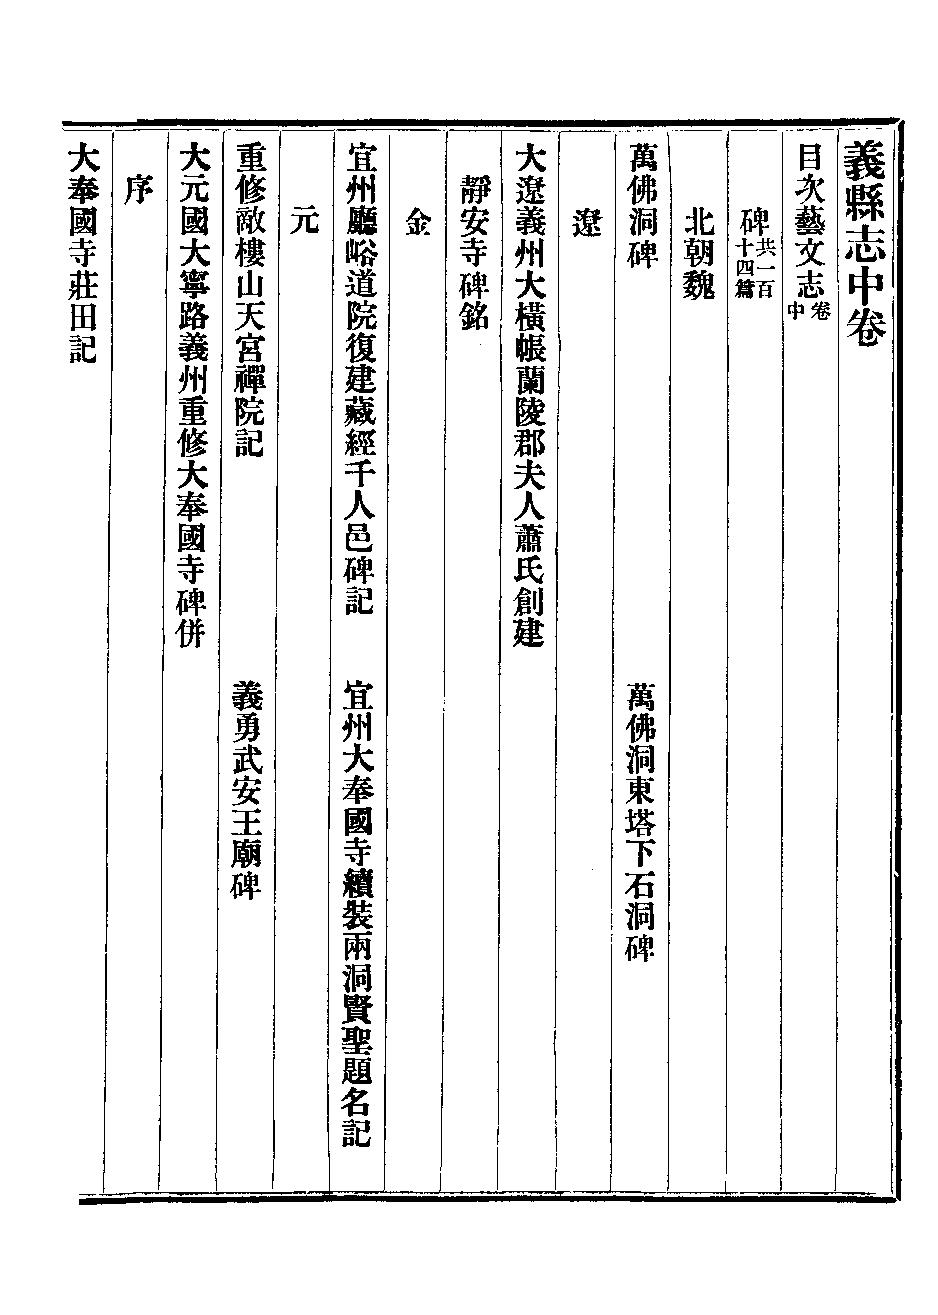 義縣志中卷
目次藝文志卷中
碑共一百十四篇
北朝魏
萬佛洞碑　萬佛洞東塔下石洞碑
遼
大遼義州大橫帳蘭陵郡夫人蕭氏創建
靜安寺碑銘
金
宜州廳峪道院復建藏經千人邑碑記　宜州大奉國寺續裝兩洞賢聖題名記
元
重修敵樓山天宮禪院記　義勇武安王廟碑
大元國大寧路義州重修大奉國寺碑併
序
大奉國寺莊田記